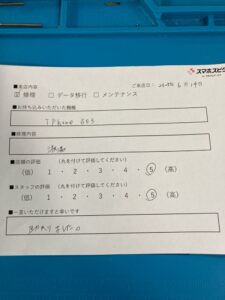 スマホスピタル
■来店内容
ご来店日: 6月14日
☑ 修理 □ データ移行 □ メンテナンス
■お持ち込みいただいた機種
iPhone
■修理内容
■店頭の評価 (丸を付けて評価してください)
(低) 1 ・ 2 ・ 3 ・ 4 ・ 5 (高)
■スタッフの評価 (丸を付けて評価してください)
(低) 1 ・ 2 ・ 3 ・ 4 ・ 5 (高)
■一言いただけますと幸いです